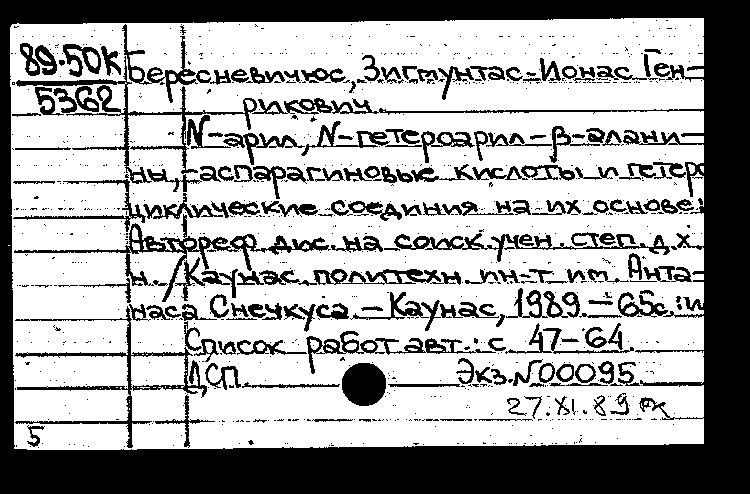 89-50К
5362
Бересневичюс, Зигмунтас-Ионас Ген-
рикович.
N-арил, N-гетероарил-β-алани-
ны, -аспарагиновые кислоты и гетеро
циклические соединия на их основе:
Автореф. дис. на соиск. учен. степ. д. х.
н. / Каунас. политехн. ин-т им. Анта-
наса Снечкуса. – Каунас, 1989. – 65с.: и
Список работ авт.: с. 47-64.
ДСП. Экз. №00095.
27.XI.89
5